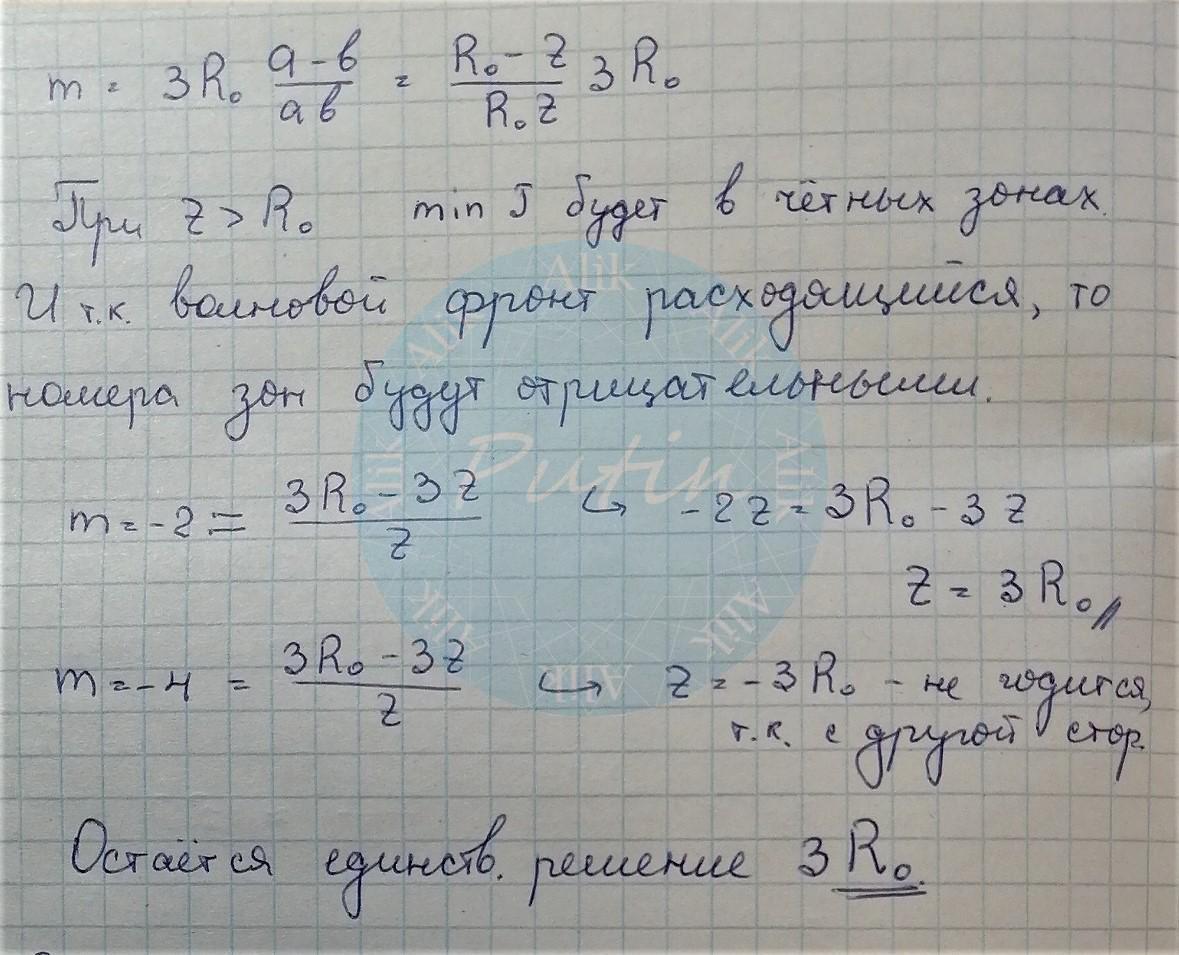 m = 3R₀ (a-в)/(aв) = (R₀-Z)/(R₀Z) 3R₀
При Z > R₀ min J будет в чётных зонах.
И т.к. волновой фронт расходящийся, то
номера зон будут отрицательными.
m = -2 = (3R₀-3Z)/Z ↪ -2Z = 3R₀-3Z
Z = 3R₀//
m = -4 = (3R₀-3Z)/Z ↪ Z = -3R₀ - не годится,
т.к. с другой стор.
Остаётся единств. решение 3R₀.
Alik
Alik
Alik
Alik
Putin
Alik
Alik
Alik
Alik